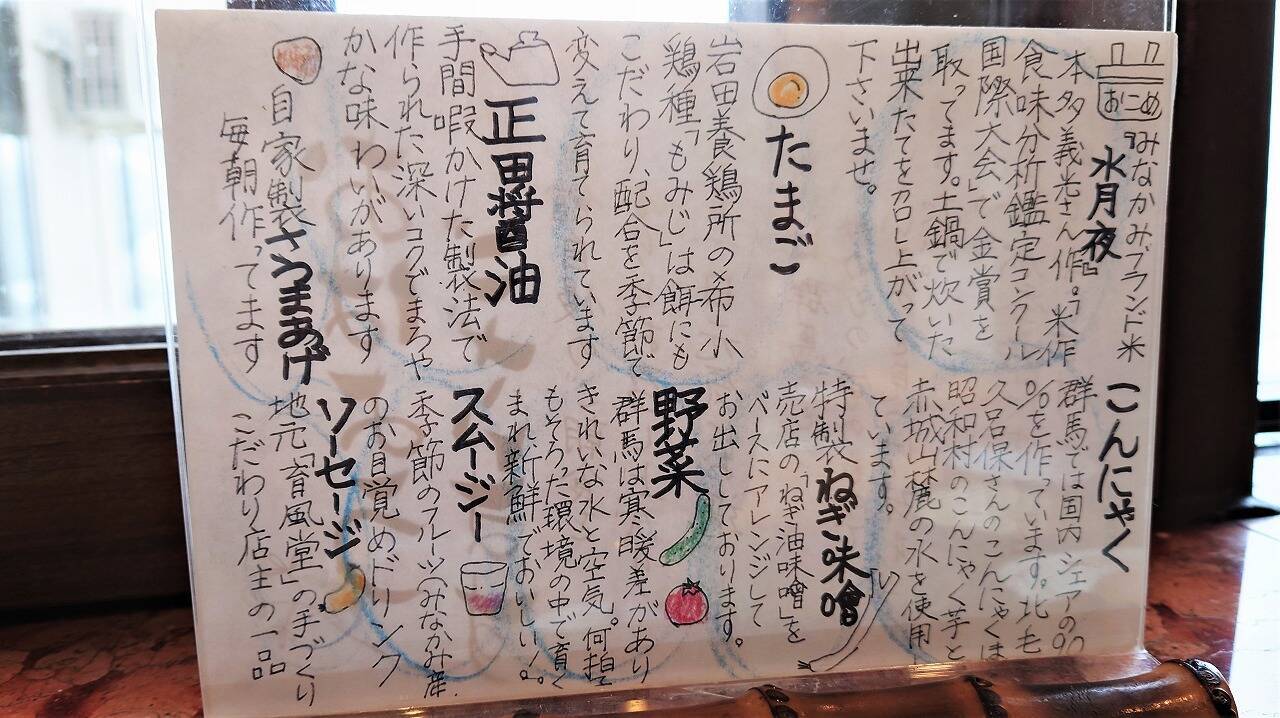 おこめ
みなかみブランド米
『水月夜』
本多義光さん作。「米作
食味分析鑑定コンクール
国際大会」で金賞を
取ってます。土鍋で炊いた
出来たてを召し上がって
下さいませ。
たまご
岩田養鶏所の希小
鶏種「もみじ」は餌にも
こだわり、配合を季節で
変えて育てられています
正田醤油
手間暇かけた製法で
作られた深いコクでまろや
かな味わいがあります
自家製さつまあげ
毎朝作ってます
こんにゃく
群馬では国内シェアの90
%を作っています。北毛
久呂保さんのこんにゃくは
昭和村のこんにゃく芋と
赤城山麓の水を使用し
ています。
特製ねぎ味噌
売店の「ねぎ油味噌」を
ベースにアレンジして
お出ししております。
野菜
群馬は寒暖差があり
きれいな水と空気。何拍子
もそろった環境の中で育く
まれ新鮮でおいしい!。
スムージー
季節のフルーツ(みなかみ産)
のお目覚めドリンク
ソーセージ
地元「育風堂」の手づくり
こだわり店主の一品